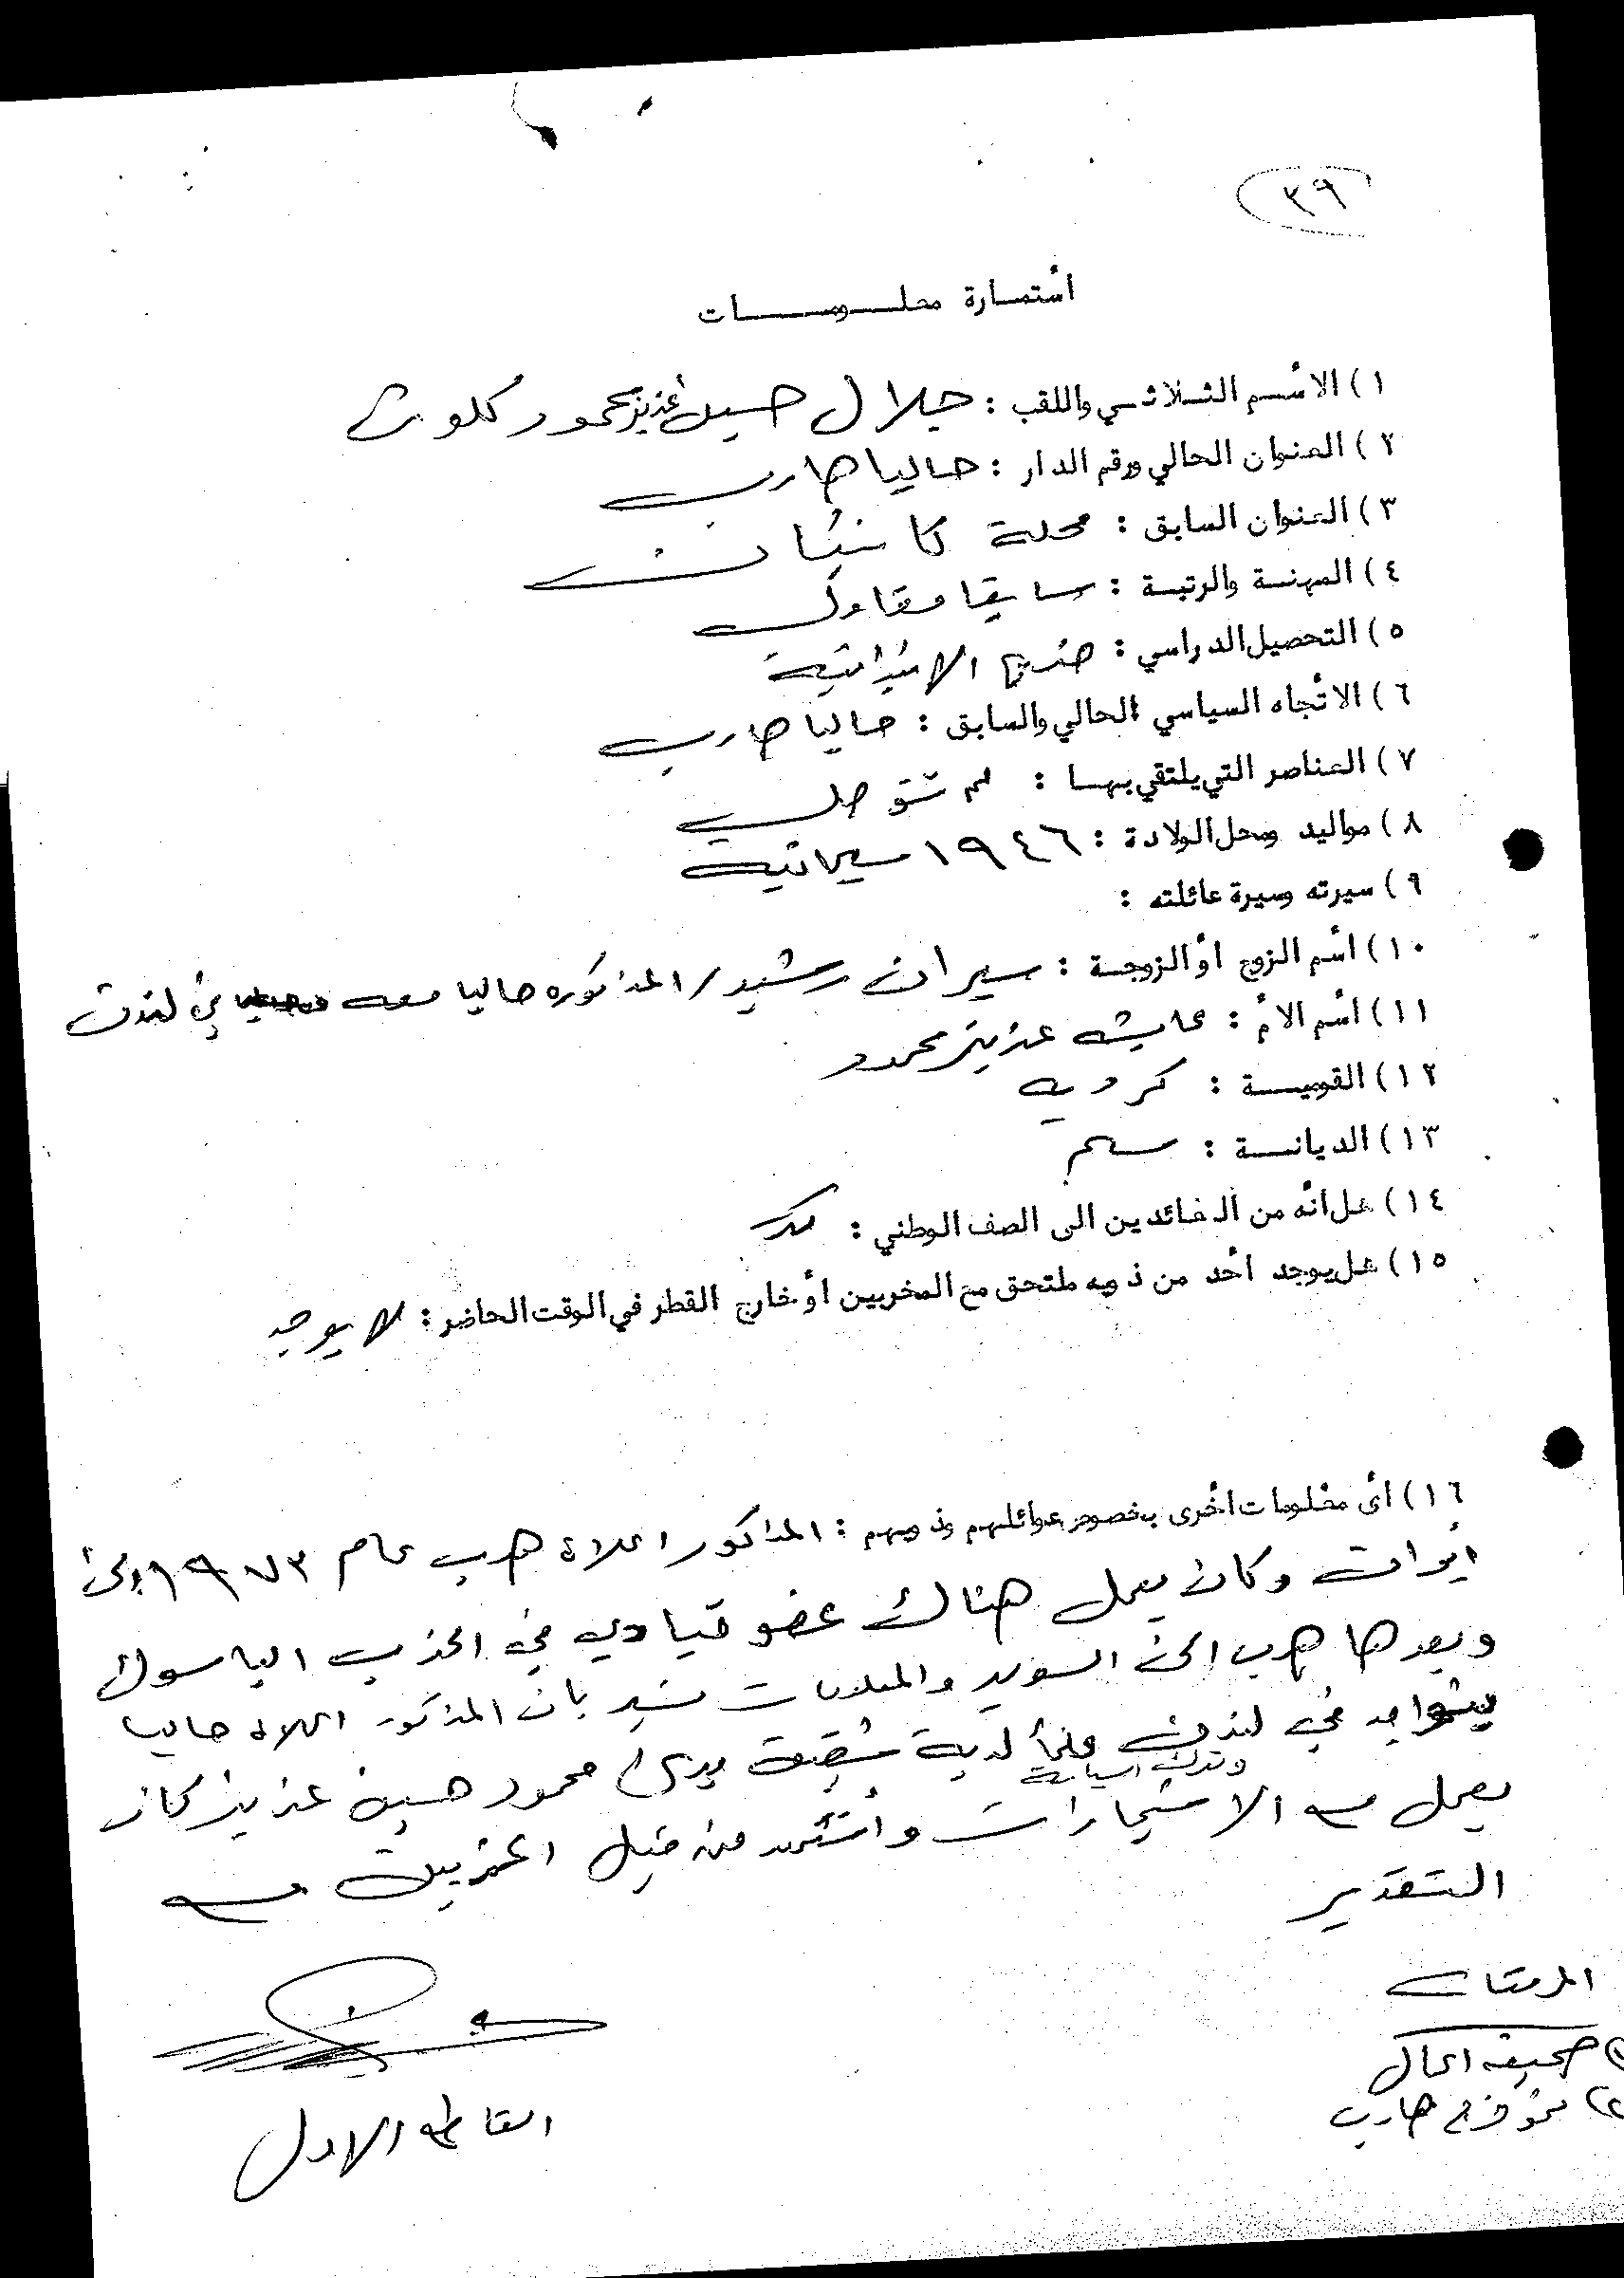 ٣٩
أستمارة معلومات
١) الأسم الثلاثي واللقب : جلال حسين عزيز محمود
٢) العنوان الحالي ورقم الدار : حاليا هارب
٣) العنوان السابق : محلة كانيسكان
٤) المهنة والرتبة : سابقا مقاول
٥) التحصيل الدراسي : خريج الابتدائية
٦) الأتجاه السياسي الحالي والسابق : حاليا هارب
٧) العناصر التي يلتقي بها : لم
٨) مواليد ومحل الولادة : ١٩٤٦ سليمانية
٩) سيرته وسيرة عائلته :
١٠) أسم الزوج أو الزوجة : سيران رشيد / المذكوره حاليا معه في لندن
١١) أسم الأم : عايشه عزيز محمود
١٢) القومية : كردي
١٣) الديانة : مسلم
١٤) هل أنه من العائدين الى الصف الوطني : كلا
١٥) هل يوجد أحد من ذويه ملتحق مع المخربين أو خارج القطر في الوقت الحاضر : لا يوجد
١٦) أى معلومات أخرى بخصوص عوائلهم وذويهم : المذكور اعلاه هرب عام ١٩٧٣ الى
أيران وكان يعمل هناك عضو قيادي في الحزب
وبعدها هرب الى السويد والمعلومات تشير بان المذكور اعلاه حاليا
يتواجد في لندن علماً لديه شقيق يدعى محمود حسين عزيز كان
يعمل مع الاستخبارات وأستشهد من قبل المخربين مع
التقدير
المرفقات
١) صحيفة اعمال
٢) نموذج هارب
القاطع الاول